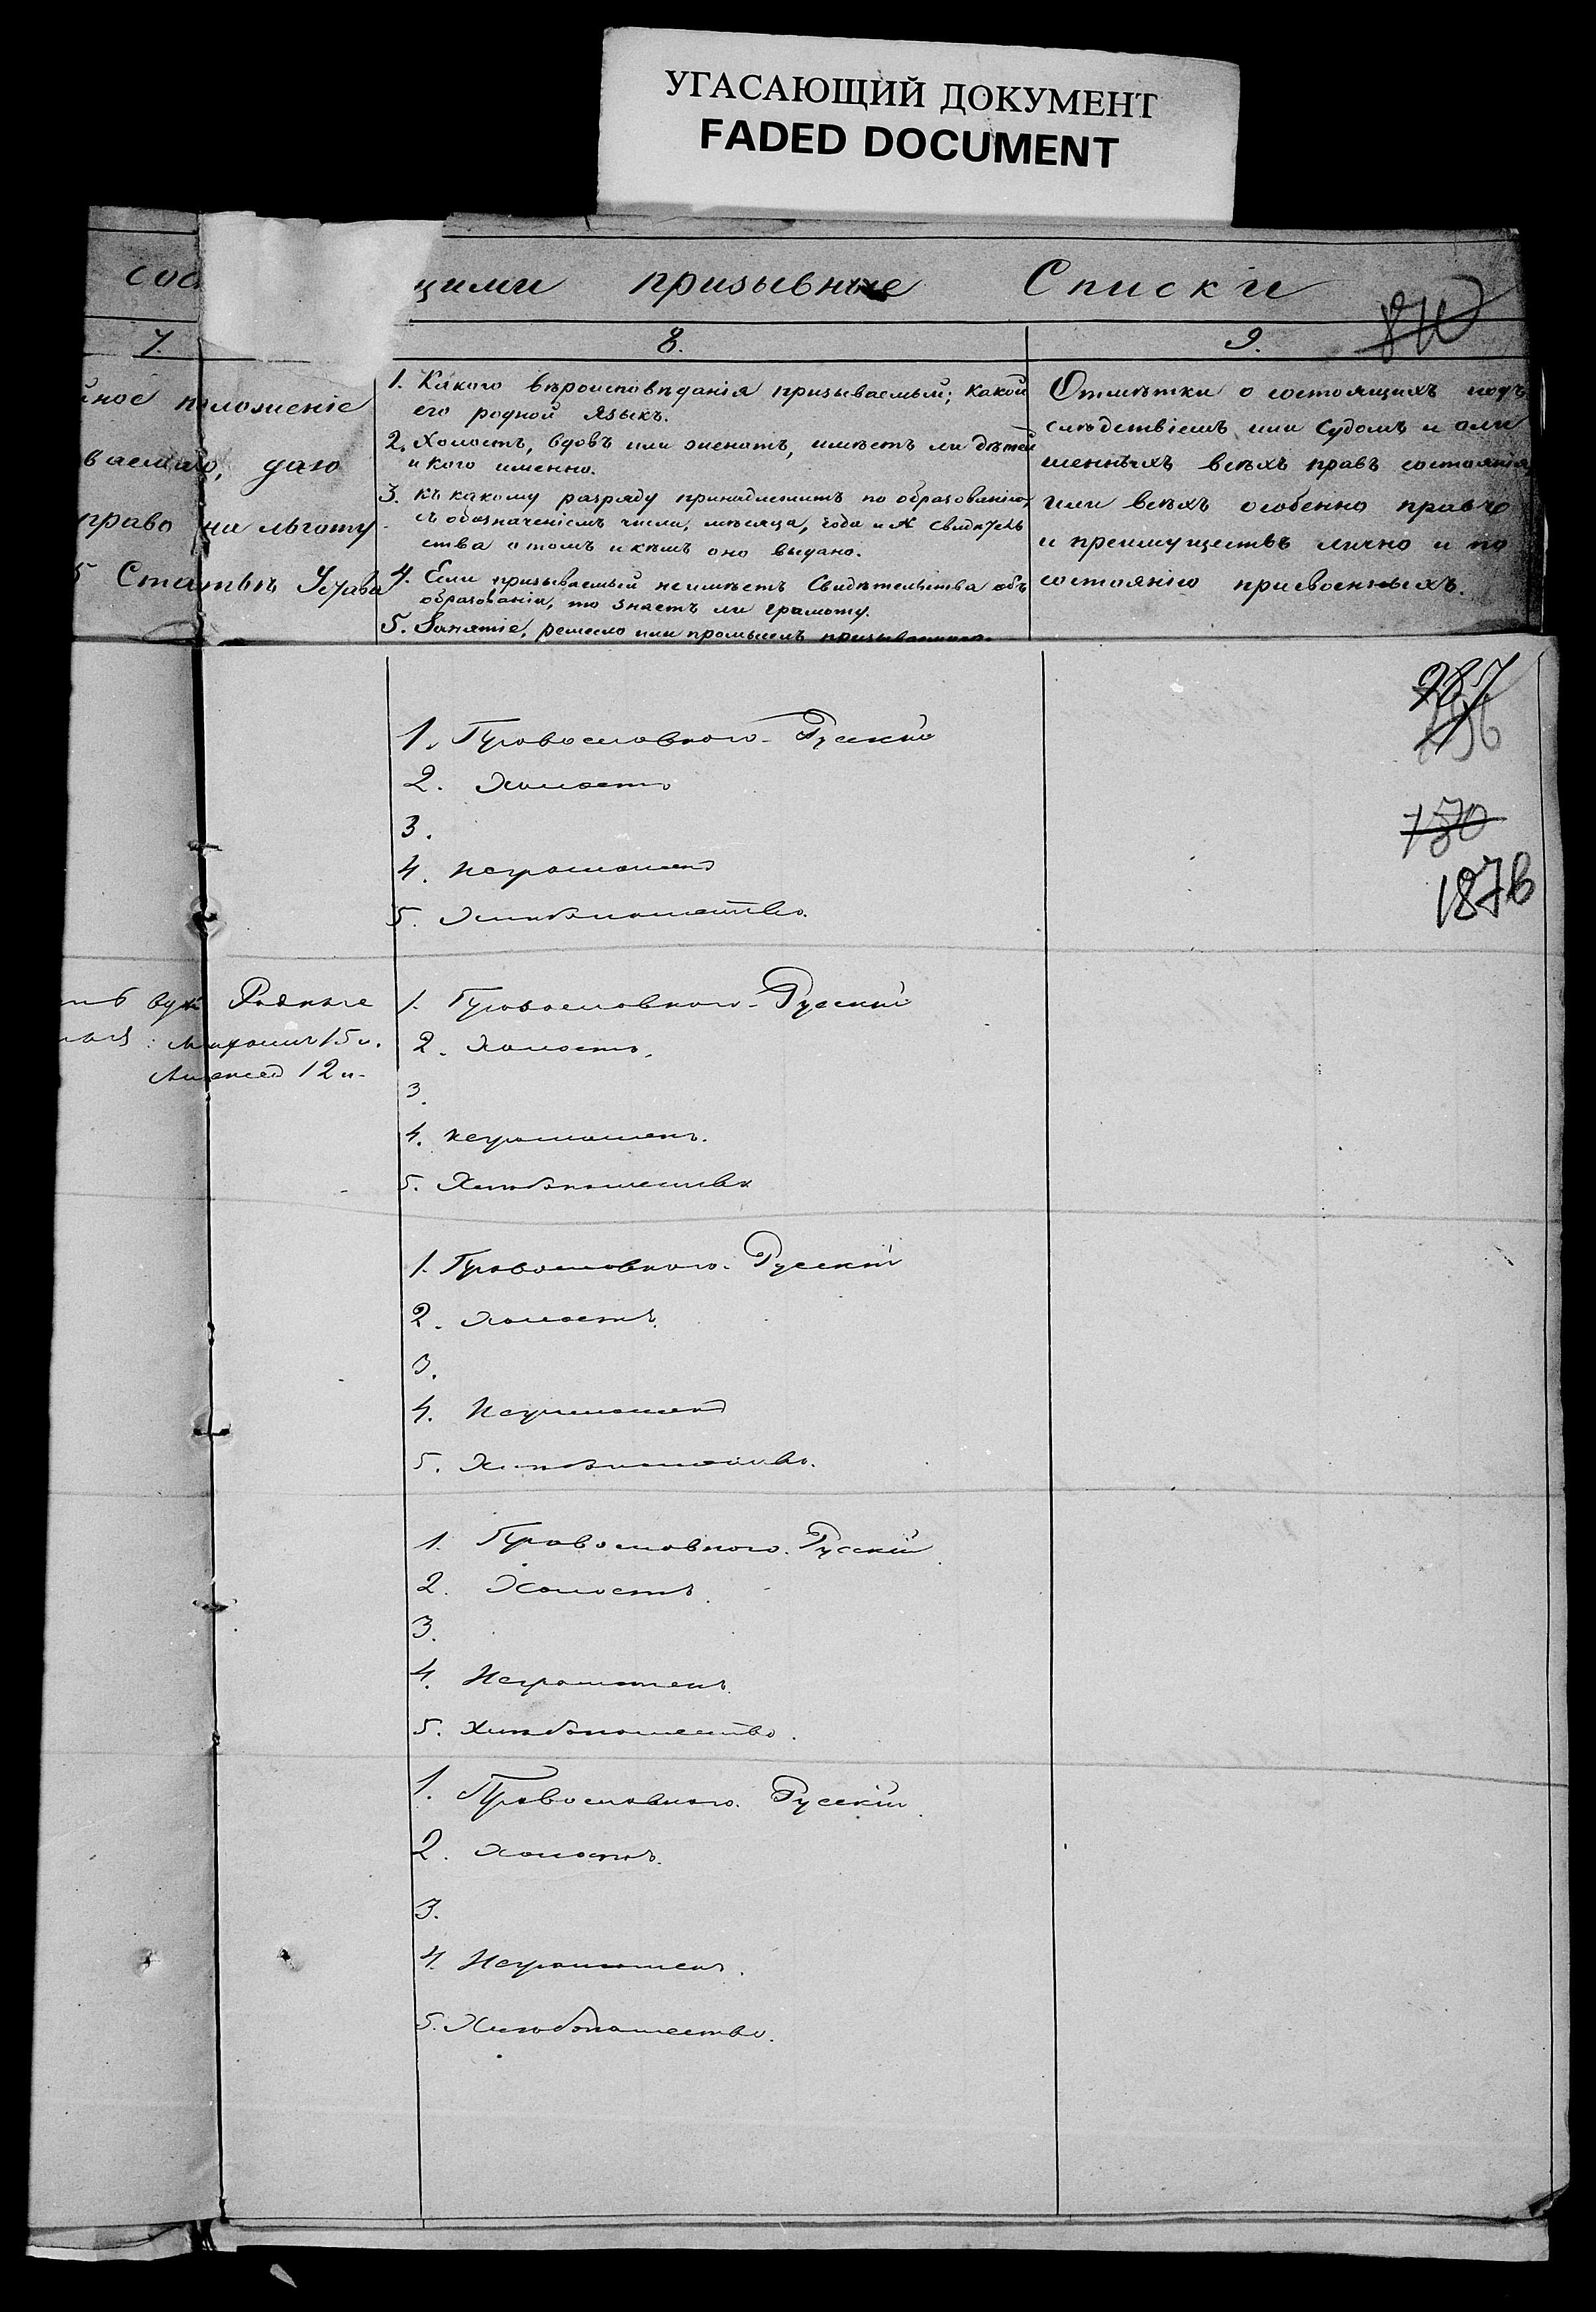 УГАСАЮЩИЙ ДОКУМЕНТ
FADED DOCUMENT
щими призывные Списки
7.
8.
9.
положеніе
ваемаго, даю
право на льготу
Статьѣ Устава
1. Какого вѣроисповѣданія призываемый; какой
его родной языкъ.
2. Холостъ, вдовъ или женатъ, имѣетъ ли дѣтей
и кого именно.
3. Къ какому разряду принадлежитъ по образованію,
съ обозначеніемъ числа, мѣсяца, года и № свидѣтель
ства о томъ и кѣмъ оно выдано.
4. Если призываемый неимѣетъ Свидѣтельства объ
образованіи, то знаетъ ли грамоту.
5. Занятіе, ремесло или промыселъ призываемаго.
Отмѣтки о состоящихъ подъ
слѣдствіемъ или Судомъ и
лишенныхъ всѣхъ правъ состоянія
или всѣхъ особенно правъ
и преимуществъ лично и по
состоянію присвоенныхъ.
267
130
1876
1. Православного - Русскій
2. Холостъ
3.
4. неграмотенъ
5. Хлѣбопашество.
Родные
15 л.
Алексѣй 12 л.
1. Православного - Русскій
2. Холостъ.
3.
4. неграмотенъ.
5. Хлѣбопашество
1. Православного. Русскій
2. Холостъ.
3.
4. Неграмотенъ
5. Хлѣбопашество.
1. Православного. Русскій
2. Холостъ.
3.
4. Неграмотенъ.
5. Хлѣбопашество.
1. Православного. Русскій.
2. Холостъ.
3.
4. Неграмотенъ.
5. Хлѣбопашество.